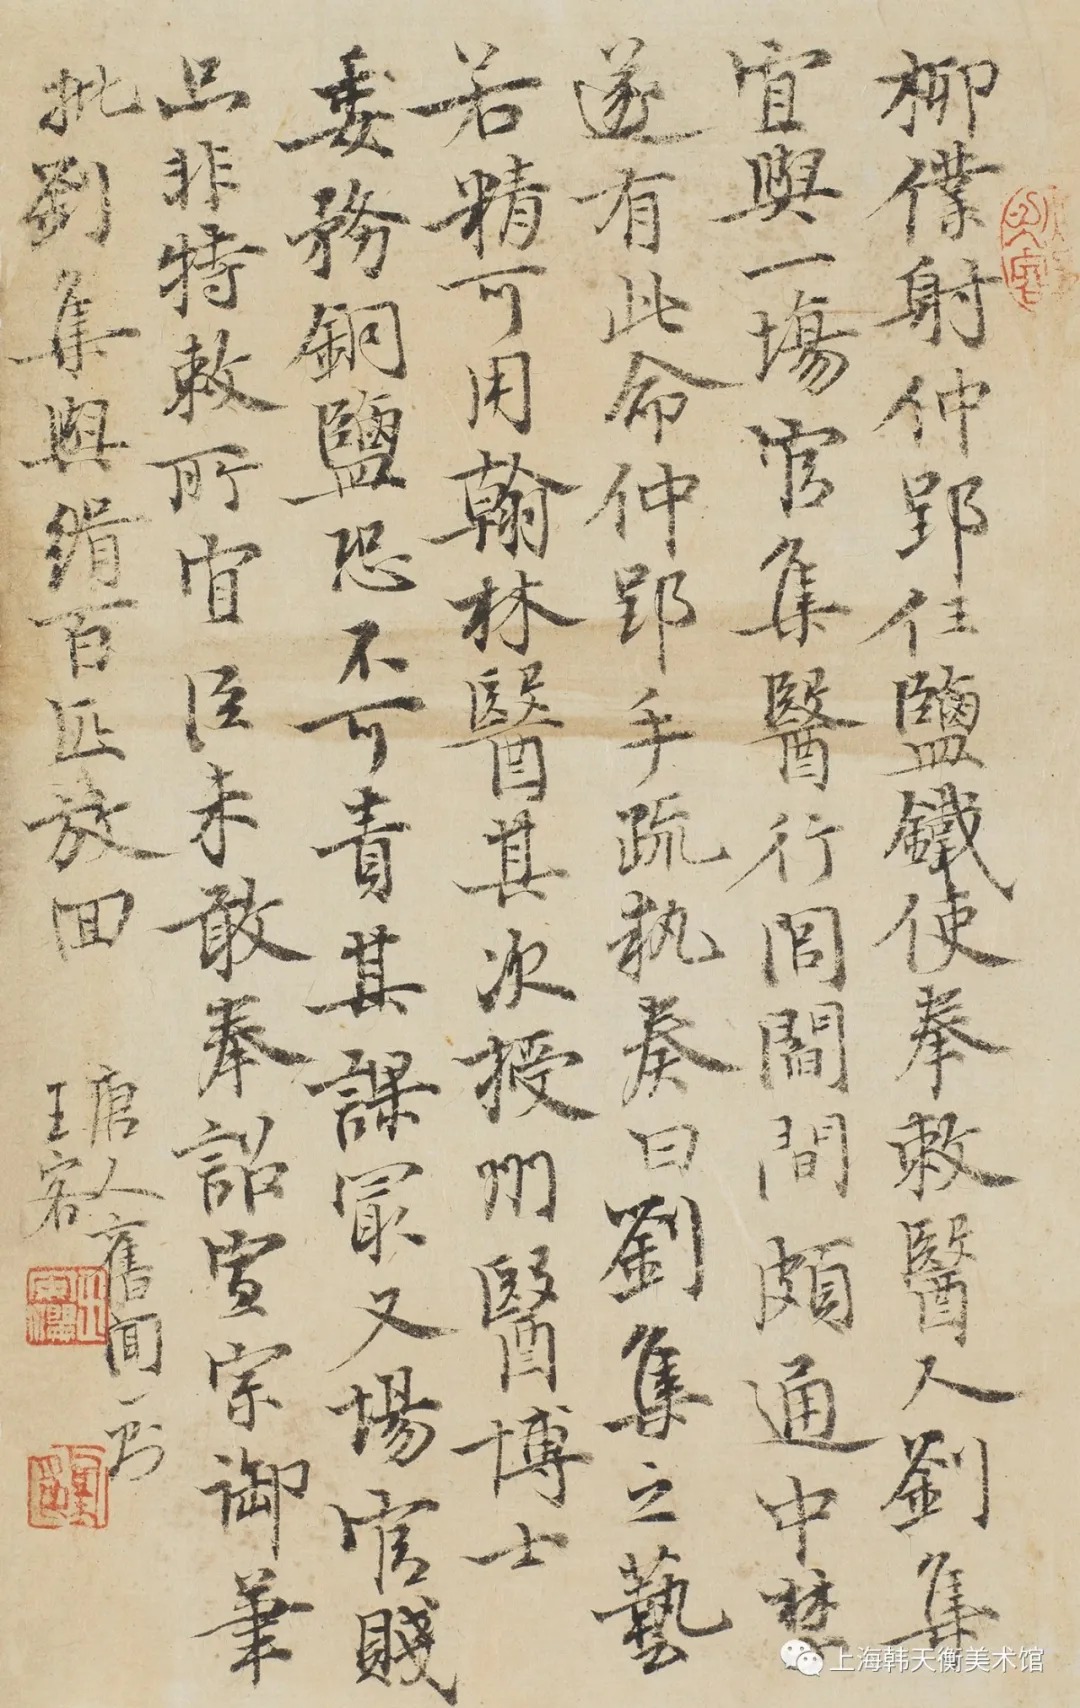 柳僕射仲郢任鹽鐵使奉敕醫人劉集
宜與一場官集醫行閭閻間頗通中禁
遂有此命仲郢手疏執奏曰劉集之藝
若精可用翰林醫其次授州醫博士
委務銅鹽恐不可責其課最又場官賤
品非特敕所宜臣未敢奉詔宣宗御筆
批劉集與絹百匹放回
唐人舊聞一則
王宏
上海韩天衡美术馆